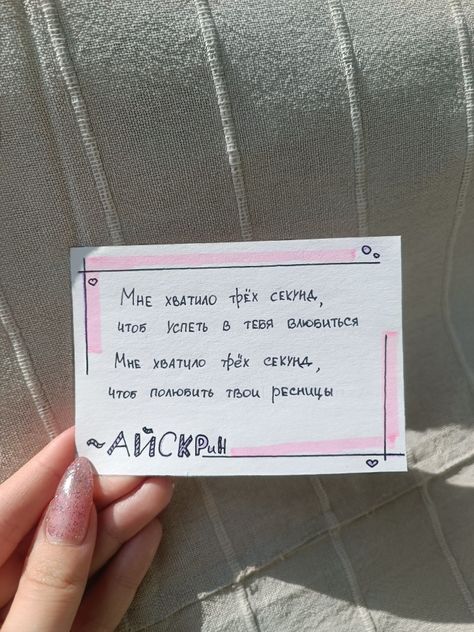 Мне хватило трёх секунд,
чтоб успеть в тебя влюбиться
Мне хватило трёх секунд,
чтоб полюбить твои ресницы
~АЙСКРиН